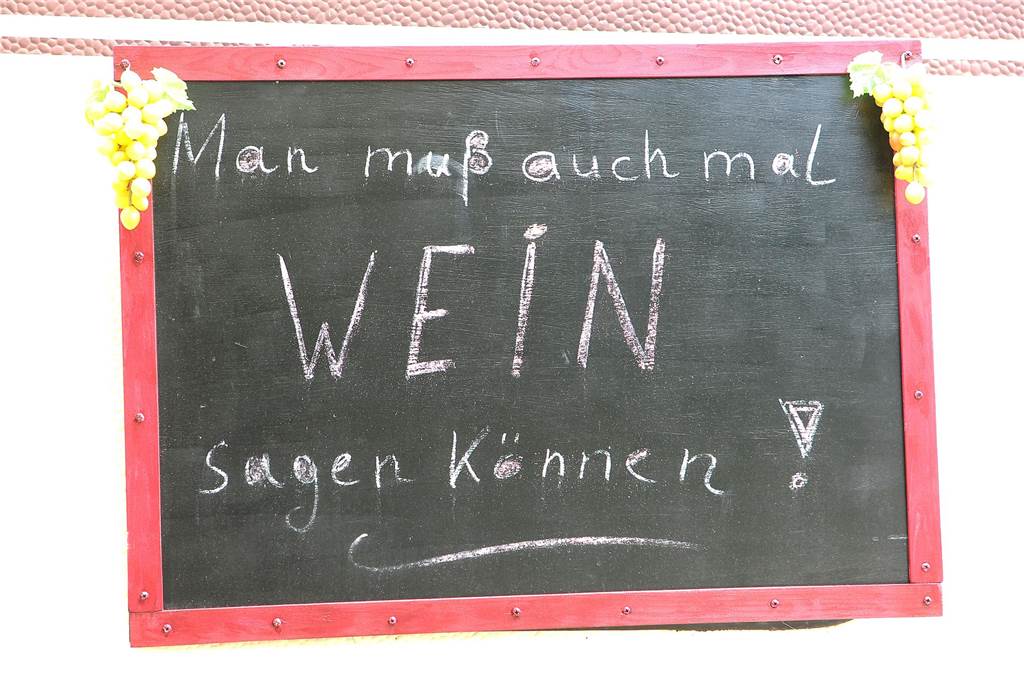 Man muß auch mal
WEIN
sagen können!